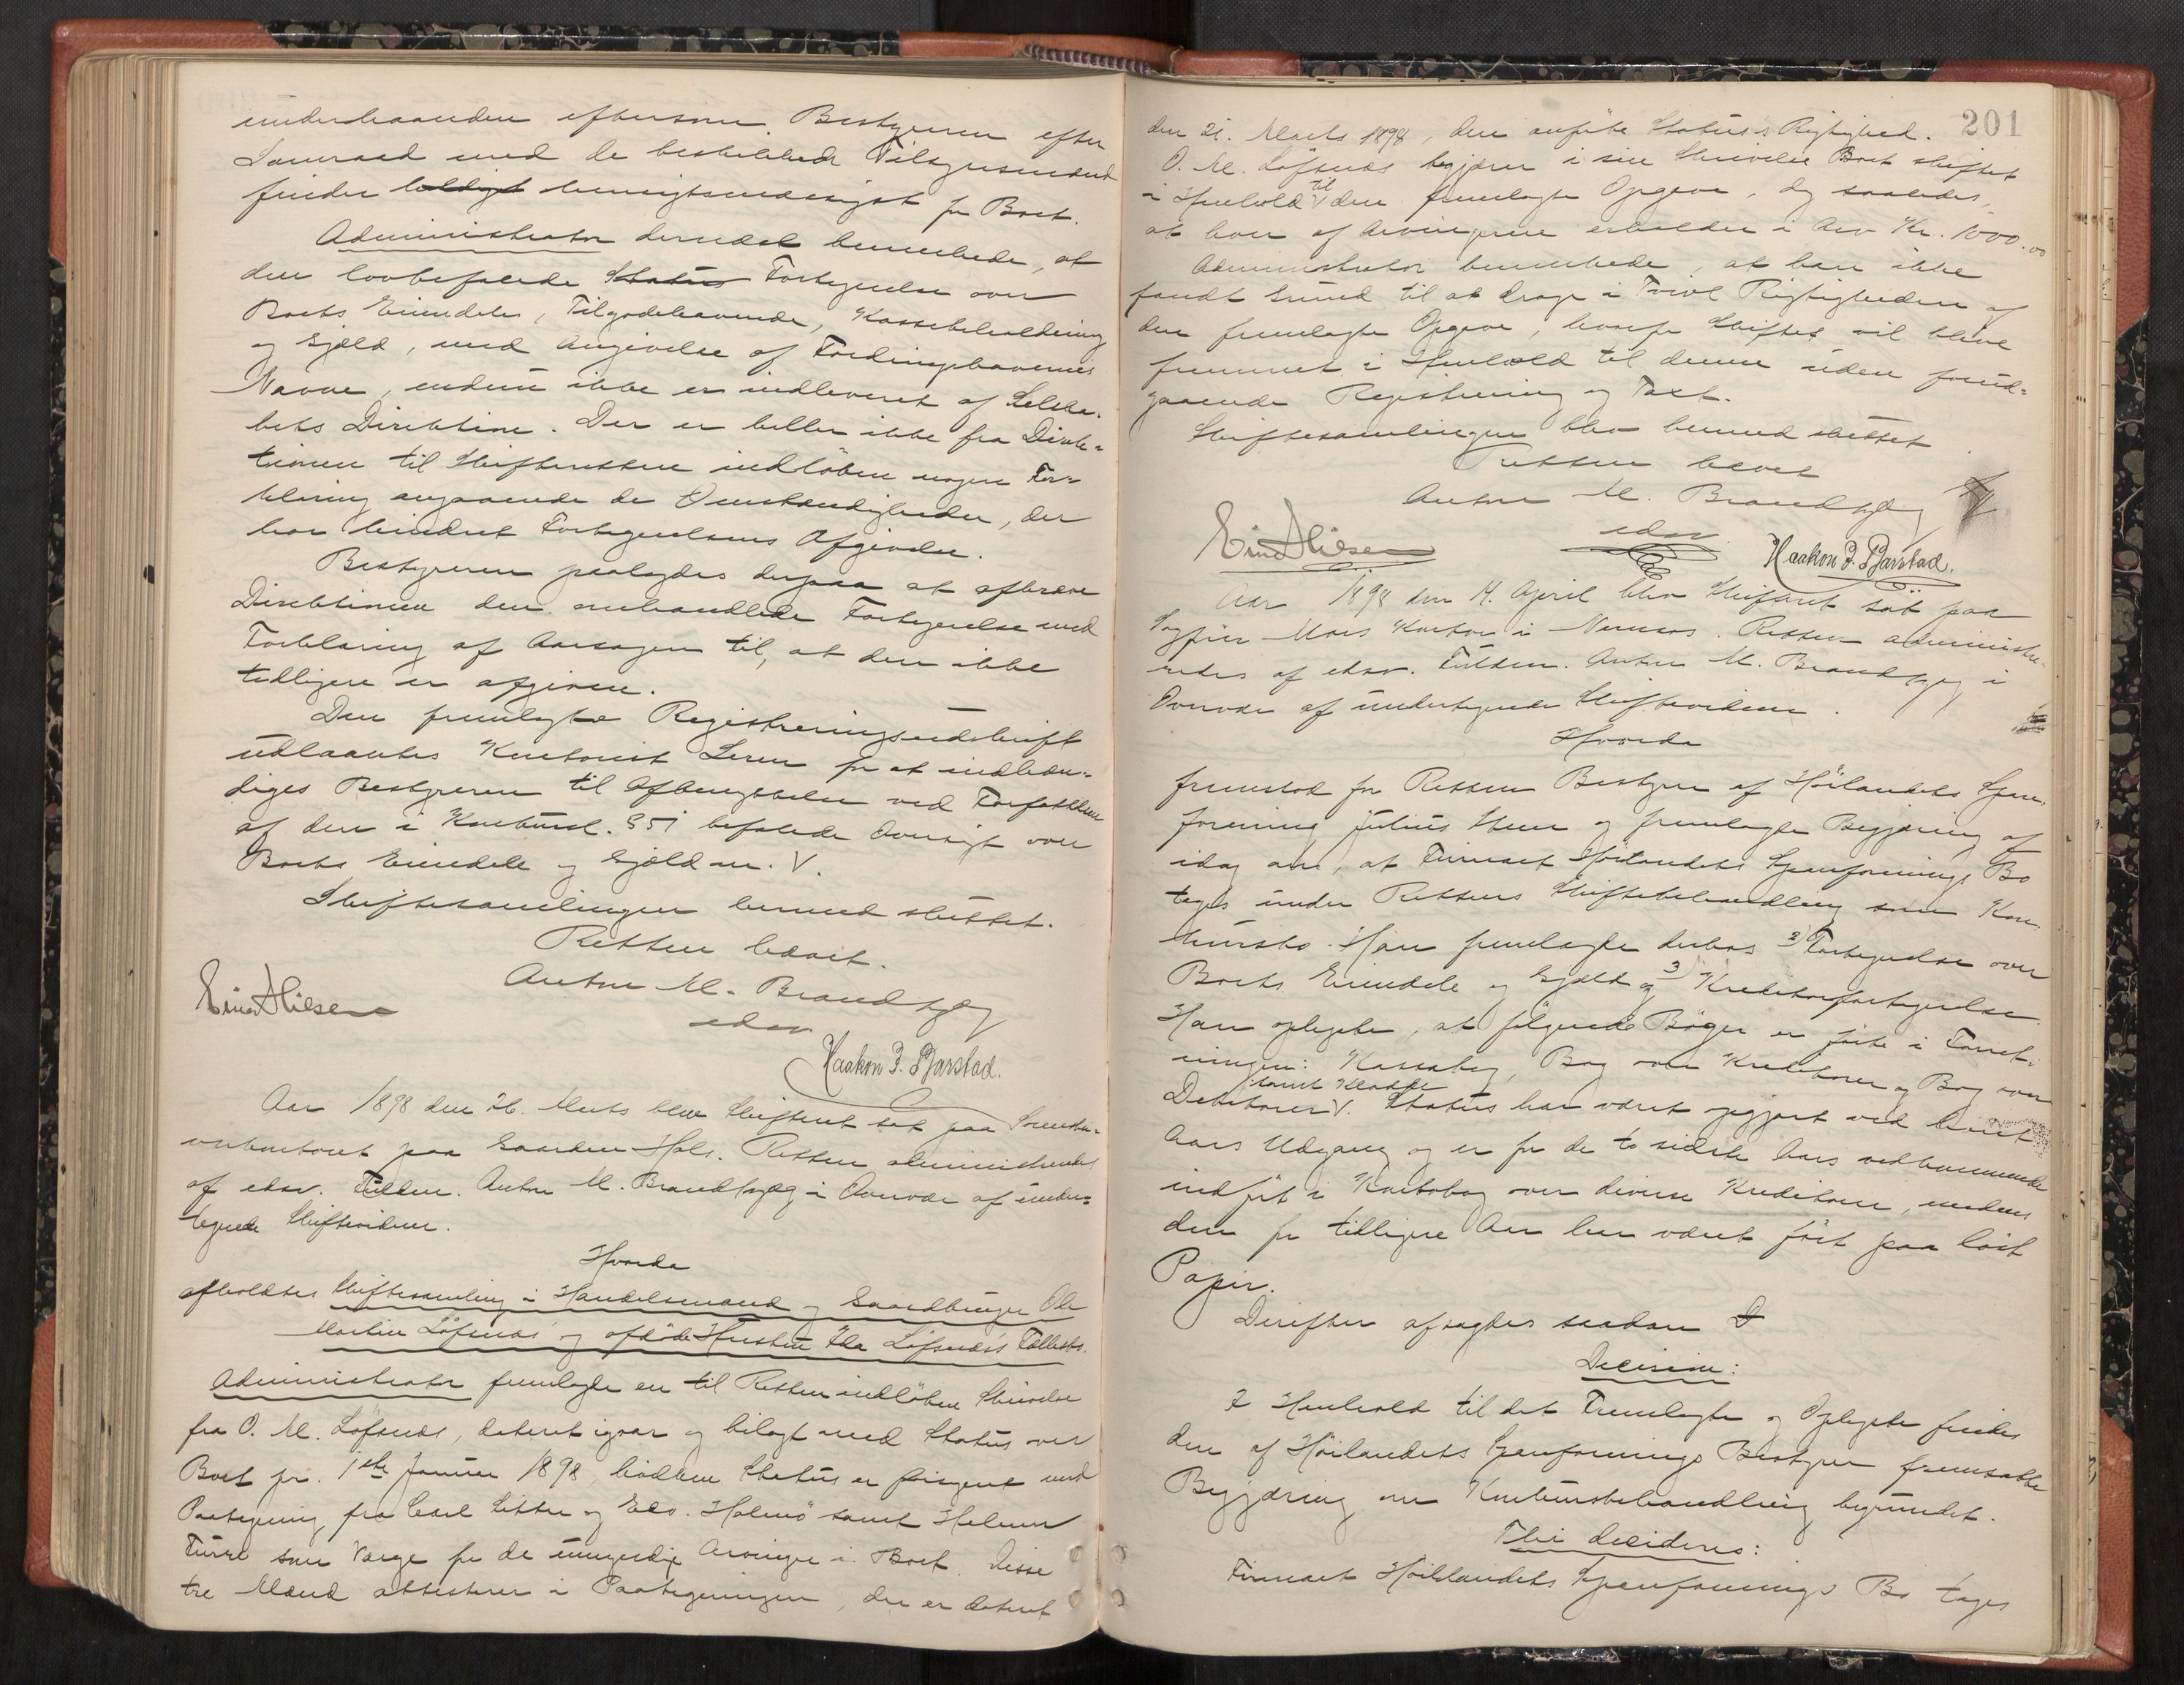 underhaanden eftersom Bestyreren efter
Samraad med de beskikkede Tilsynsmænd
finder heldigst hensigtsmæssigst for Boet.
Administrator dernæst bemerkede, at
den lovbefalede Status Fortegnelse over
Boets Eiendele, Tilgodehavende, Kassebeholdning
og Gjæld, med Angivelse af Fordringshavernes
Navne, endnu ikke er indleveret af Selska-
bets Direktion. Der er heller ikke fra Direk-
tionen til Skifteretten indløben nogen For-
klaring angaaende de Omstændigheder, der
har hindret Fortegnelsens Afgivelse.
Bestyreren paalagdes derpaa at afkræve
Direktionen den omhandlede Fortegnelse med
Forklaring af Aarsagen til, at den ikke
tidligere er afgiven.
Den fremlagte Registreringsudskrift
udlaantes Kontorist Seren for at indhæn-
diges Bestyreren til Afbenyttelse ved Forfattelsen
af den i Konkursl. § 51 befalede Oversigt over
Boets Eiendele og Gjæld m. V.
Skiftesamlingen hermed sluttet.
Retten hævet.
Anton M. Brandtzæg
edsv
Einar Nilsen
Haakon J. Barstad.
Aar 1898 den 26. Marts blev Skifteret sat paa Sorenskri-
verkontoret paa Gaarden Hals. Retten administreredes
af edsv. Fuldm. Anton M. Brandtzæg i Overvær af under-
tegnede Skiftevidner.
Hvorda
afholdtes Skiftesamling i Handelsmand og Gaardbruger Ole
Martin Löfsnæs' og afdöde Hustru Ida Löfsnæs's Fællesbo.
Administrator fremlagde en til Retten indlöben Skrivelse
fra O. M. Löfsnæs, dateret igaar og bilagt med Status over
Boet pr. 1ste Januar 1898, hvilken Status er forsynet med
Paategning fra Carl Sitter og Edv. Holmö samt Helmer
Furre som Værge for de umyndige Arvinger i Boet. Disse
tre Mænd attesterer i Paategningen, der er dateret
201
den 21. Marts 1898, den anförte Status's Rigtighed.
O. M. Löfsnæs begjærer i sin Skrivelse Boet skiftet
i Henhold til den fremlagte Opgave, dog saaledes,
at hver af Arvingerne erholder i Arv Kr. 1000.00
Administrator bemerkede, at han ikke
fandt Grund til at drage i Tvivl Rigtigheden af
den fremlagte Opgave, hvorfor Skiftet vil blive
fremmet i Henhold til denne uden forud-
gaaende Registrering og Taxt.
Skiftesamlingen blev hermed sluttet.
Retten hævet
Anton M. Brandtzæg
edsv
Einar Nilsen
Haakon J. Barstad.
Aar 1898 den 14. April blev Skifteret sat paa
Sagfører Moes Kontor i Namsos. Retten administre-
redes af edsv. Fuldm. Anton M. Brandtzæg i
Overvær af undertegnede Skiftevidner.
Hvorda
fremstod for Retten Bestyrer af Höilandets Spare-
forening Julius Hem og fremlagde Begjæring af
idag om, at Firmaet Höilandets Spareforenings Bo
tages under Rettens Skiftebehandling som Kon-
kursbo. Han fremlagde derhos 2) Fortegnelse over
Boets Eiendele og Gjæld og 3) Kreditorfortegnelse.
Han oplyste, at fölgende Böger er förte i Forret-
ningen: Kassabog, Bog over Kreditorer og Bog over
Debitorer samt Kladde. Status har været opgjort ved hvert
Aars Udgang og er for de to sidste Aars vedkommende
indfört i Kontobog over diverse Kreditorer, medens
den for tidligere Aar har været fört paa löst
Papir.
Derefter afsagdes saadan
Decision:
I Henhold til det Fremlagte og Oplyste findes
den af Höilandets Spareforenings Bestyrer fremsatte
Begjæring om Konkursbehandling begrundet.
Thi decideres:
Firmaet Höilandets Spareforenings Bo tages